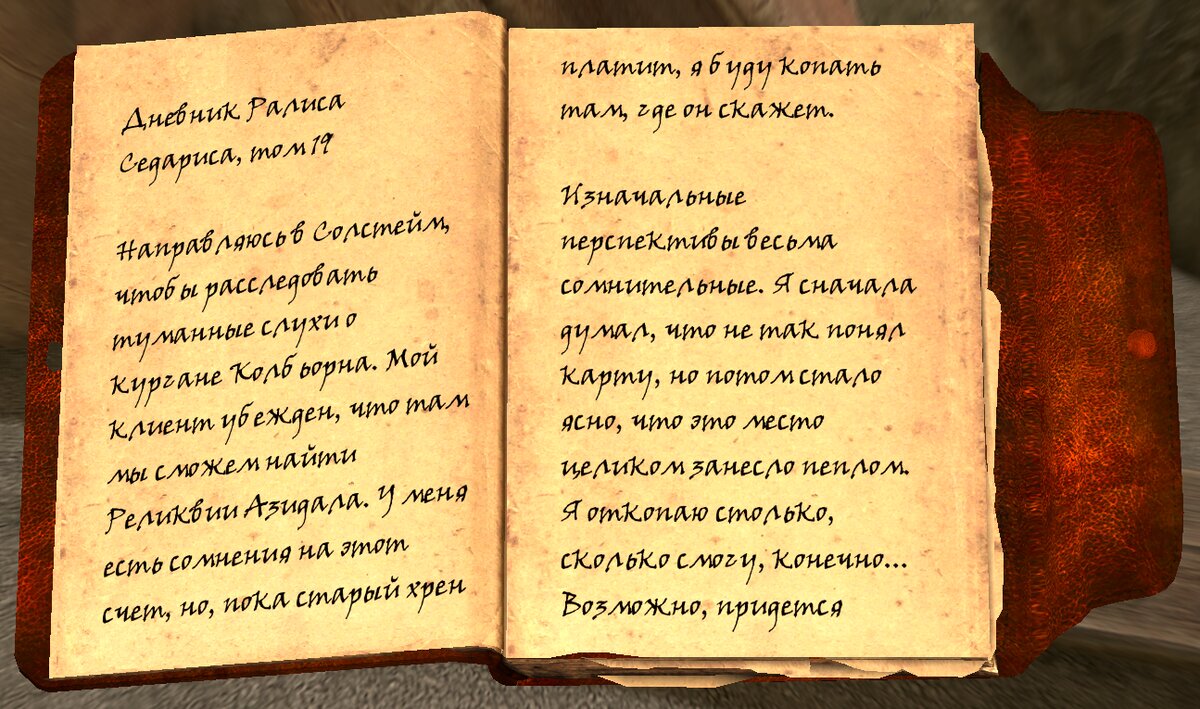 Дневник Ралиса
Седариса, том 19
Направляюсь в Солстейм,
чтобы расследовать
туманные слухи о
кургане Колбьорна. Мой
клиент убежден, что там
мы сможем найти
Реликвии Азидала. У меня
есть сомнения на этот
счет, но, пока старый хрен
платит, я буду копать
там, где он скажет.
Изначальные
перспективы весьма
сомнительные. Я сначала
думал, что не так понял
карту, но потом стало
ясно, что это место
целиком занесло пеплом.
Я откопаю столько,
сколько смогу, конечно...
Возможно, придется